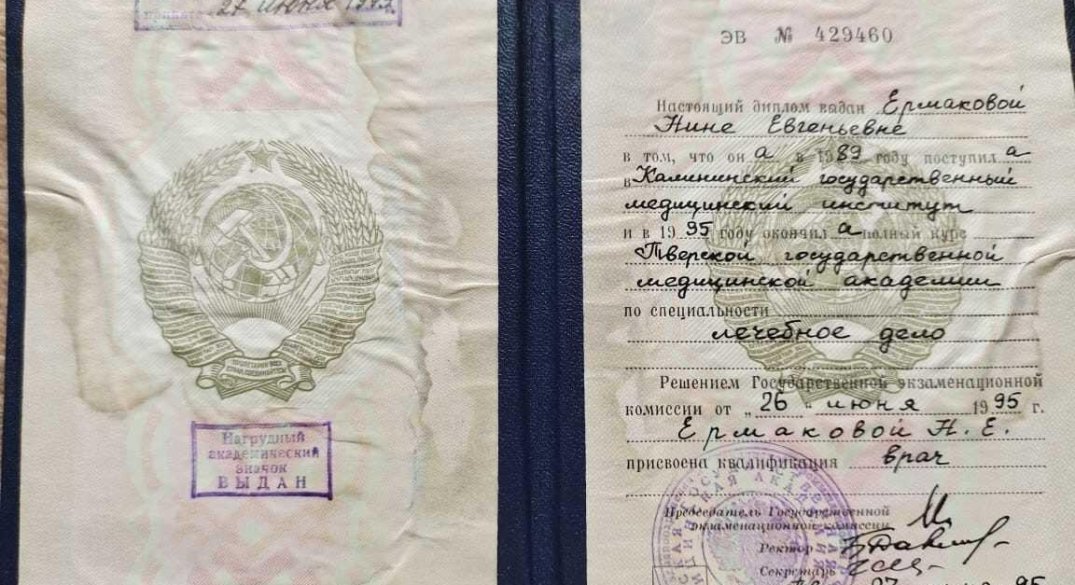 27 июня
Нагрудный
академический
значок
ВЫДАН
ЭВ № 429460
Настоящий диплом выдан Ермаковой
Нине Евгеньевне
в том, что он а в 1989 году поступил а
в Калининский государственный
медицинский институт
и в 1995 году окончил а полный курс
Тверской государственной
медицинской академии
по специальности
лечебное дело
Решением Государственной экзаменационной
комиссии от „ 26 “ июня 1995 г.
Ермаковой Н. Е.
присвоена квалификация врач
Председатель Государственной
экзаменационной комиссии
Ректор
Секретарь